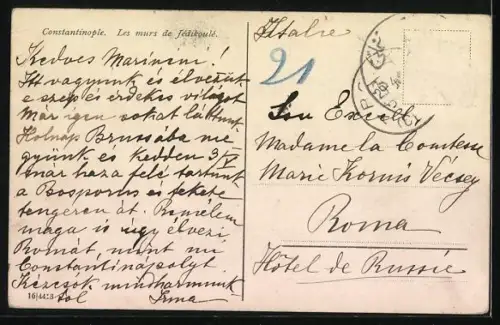 Constantinople. Les murs de Jédikoulé.
Kedves Marinini!
Itt vagyunk és élvezük
e szép és érdekes világot
Már igen sokat láttunk
Holnap Brussába me
gyünk és kedden 3/V
már haza felé tartunk
a Bosporus és fekete
tengeren át. Remélem
maga is úgy élvezi
Romát, mint mi
Constantinápolyt.
Kézcsók mindhármunk
tól Irma
16|44:3
Italie
21
Son Excell
Madame la Comtesse
Marie Kornis Vécsey
Roma
Hôtel de Russie